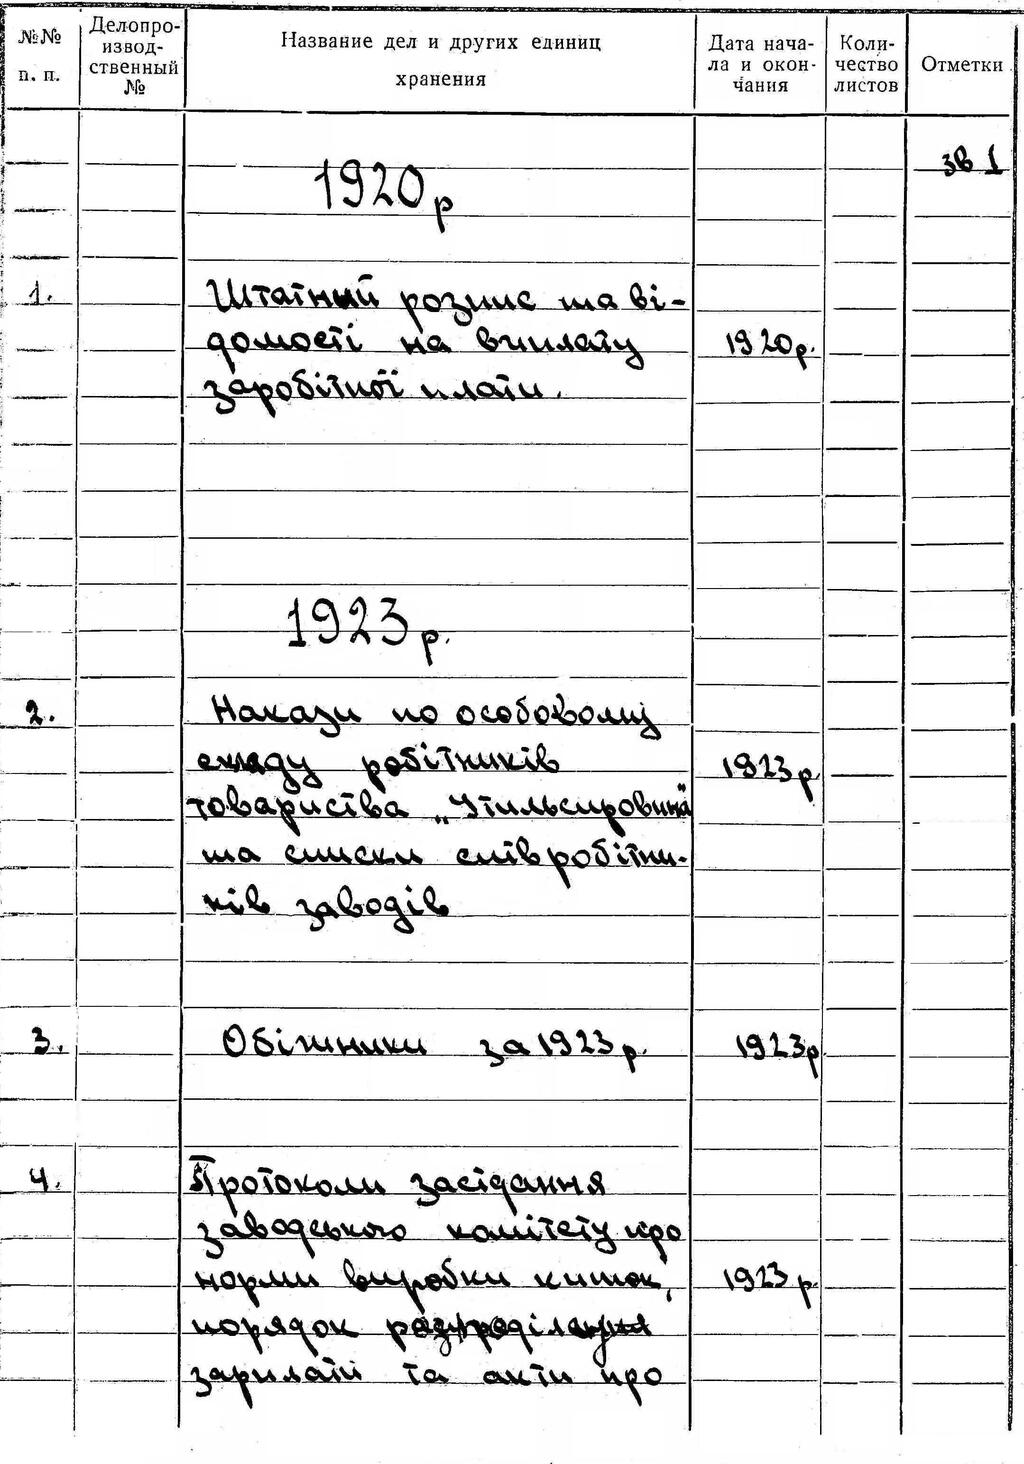 №№ п. п.
Делопро-
извод-
ственный
№
Название дел и других единиц
хранения
Дата нача-
ла и окон-
чания
Коли-
чество
листов
Отметки
зв 1
1920 р
1.
Штатный розпис та ві-
домості на виплату
1920 р.
заробітної плати.
1923 р.
2.
Накази по особовому
складу робітників
1923 р.
товариства „Утильсировина"
та списки співробітни-
ків заводів
3.
Обіжники за 1923 р.
1923 р
4.
Протоколи засідання
заводського комітету про
норми виробки кишок,
1923 р.
порядок
зарплати та акти про